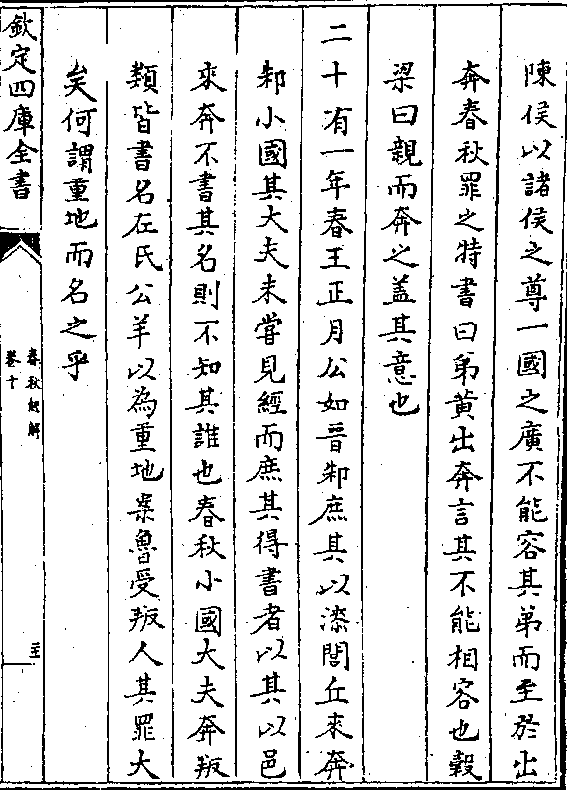 陳侯以諸侯之尊一國之廣不能容其弟而至於出
奔春秋罪之特書曰弟黄出奔言其不能相容也穀
梁曰親而奔之蓋其意也
二十有一年春王正月公如晉邾庶其以漆閭丘來奔
邾小國其大夫未嘗見經而庶其得書者以其以邑
來奔不書其名則不知其誰也春秋小國大夫奔叛
類皆書名左氏公羊以為重地案魯受叛人其罪大
矣何謂重地而名之乎
欽定四庫全書
春秋經解
卷十